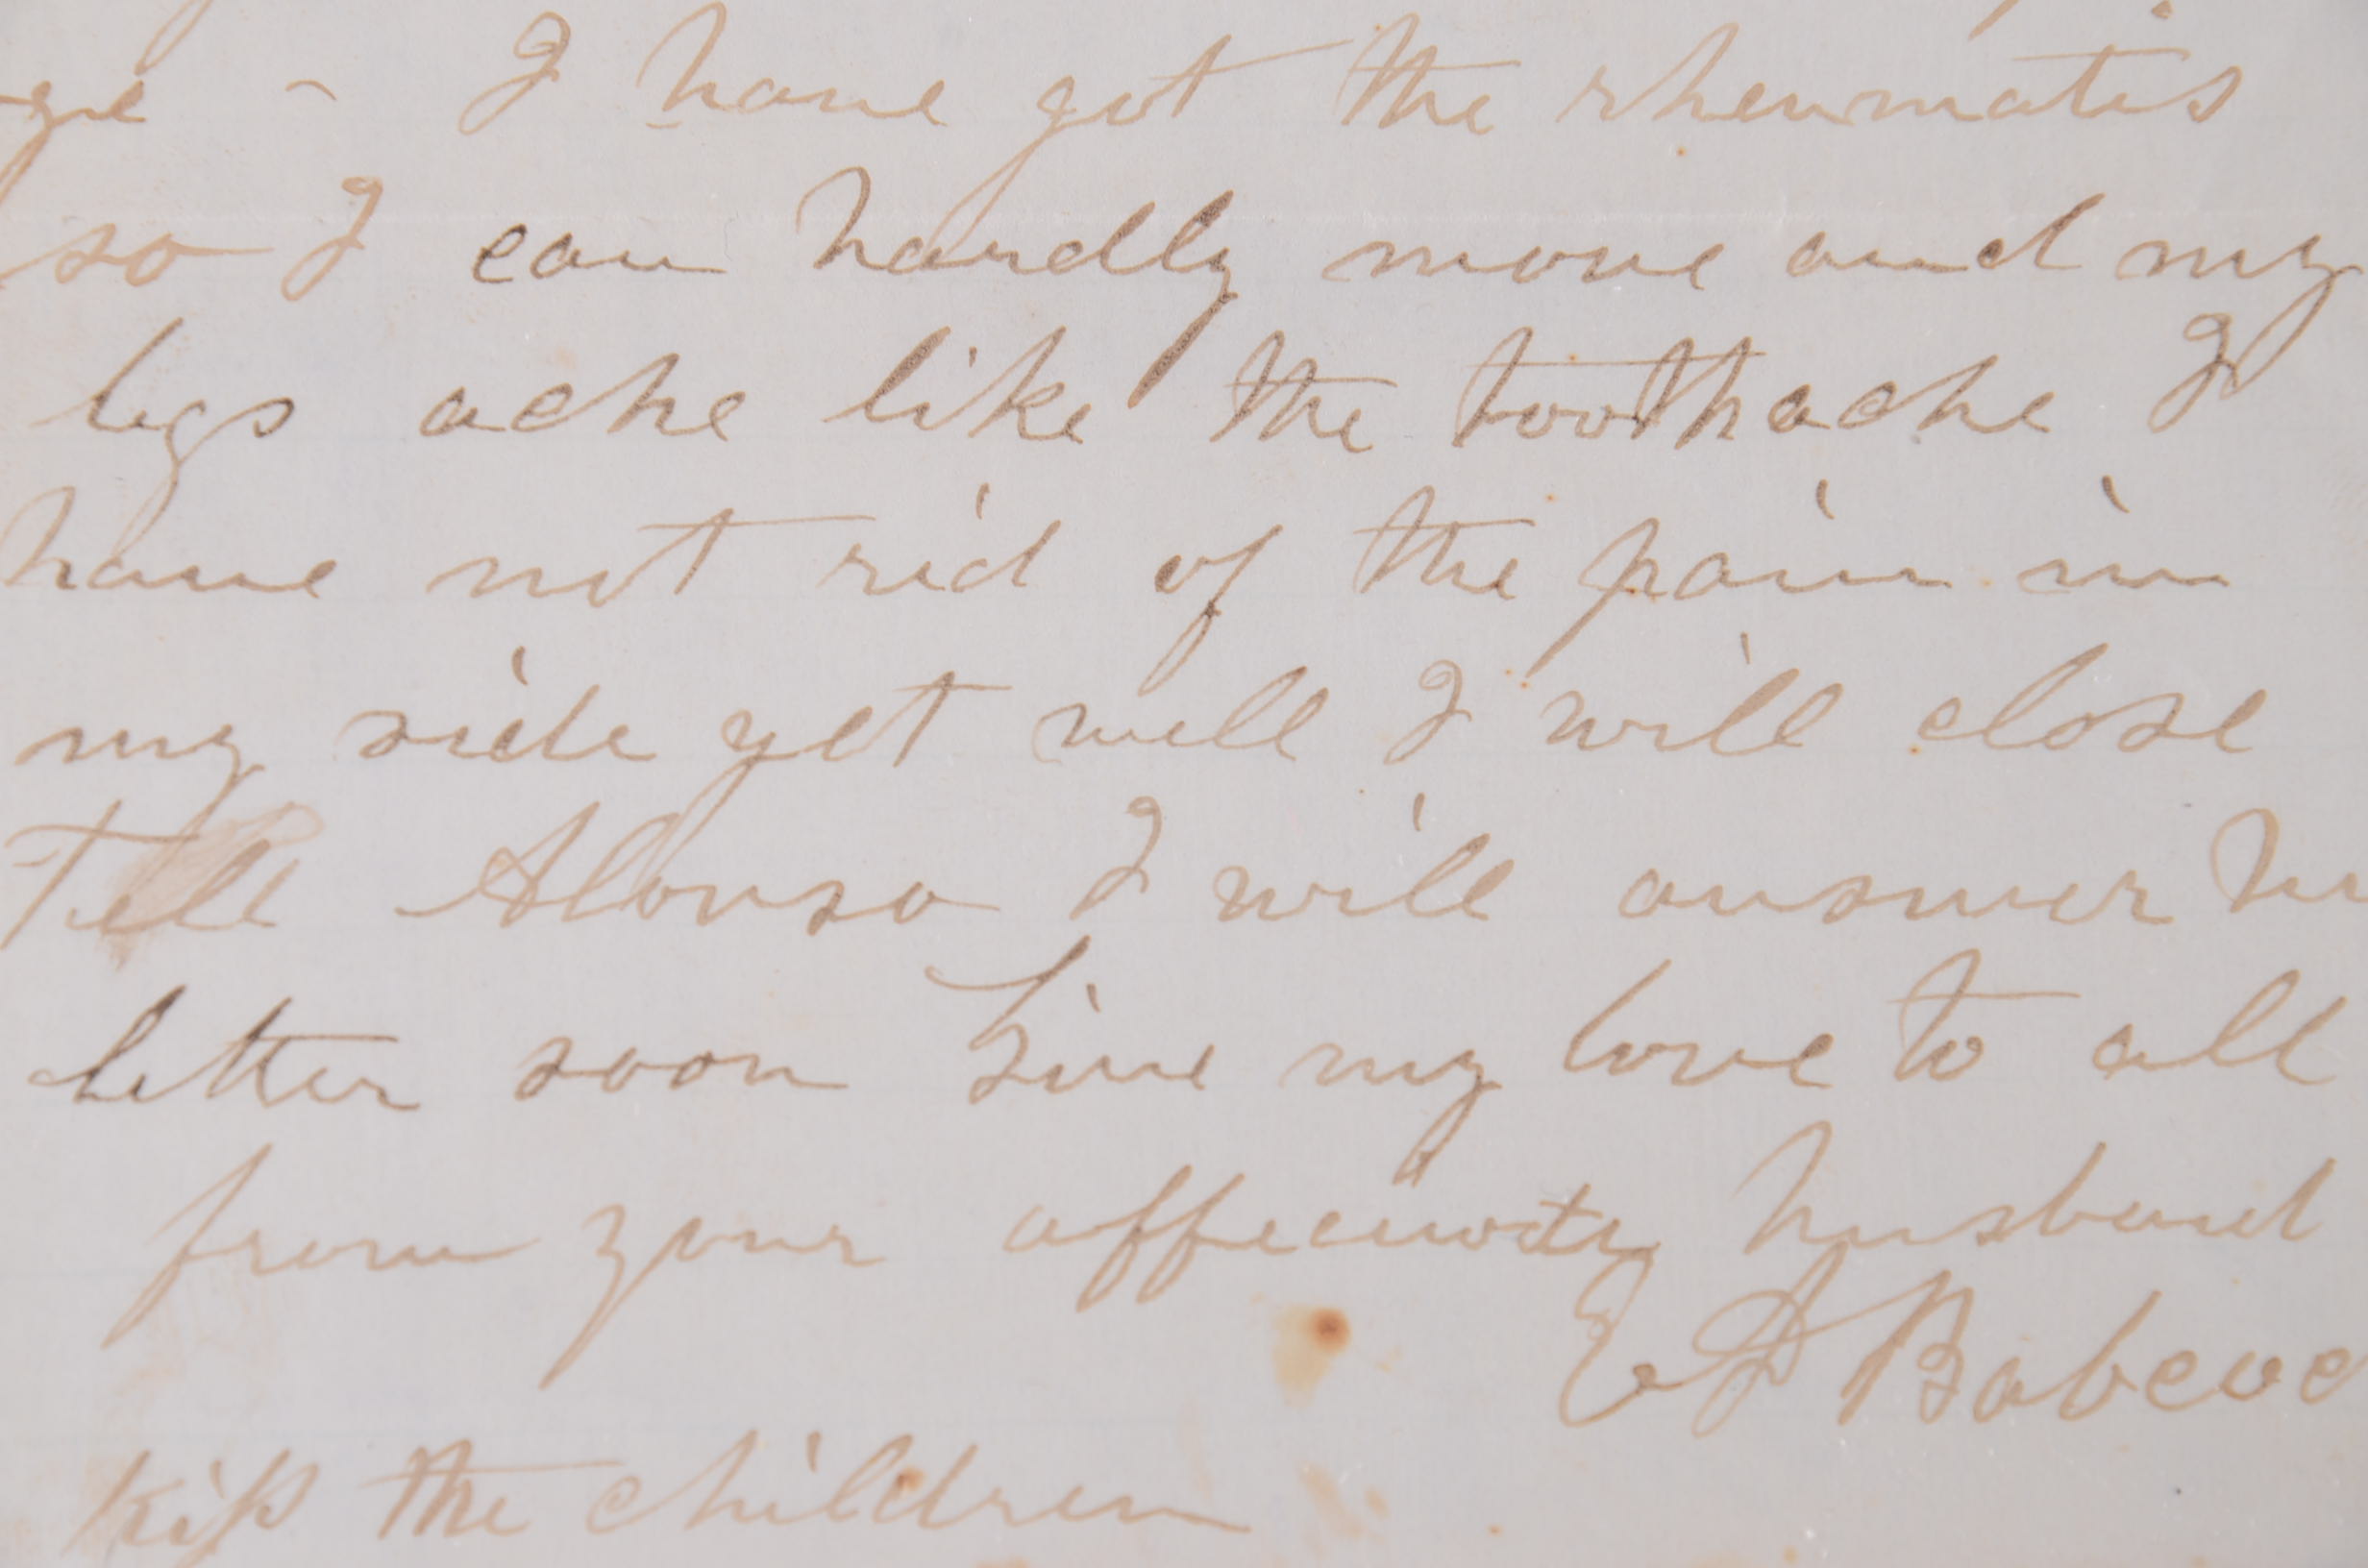 I have got the rheumatis
so I can hardly move and my
legs ache like the toothache I
have not rid of the pain in
my side yet well I will close
Tell Alonso I will answer
letter soon Give my love to all
from your husband
Babcoc
kiss the children